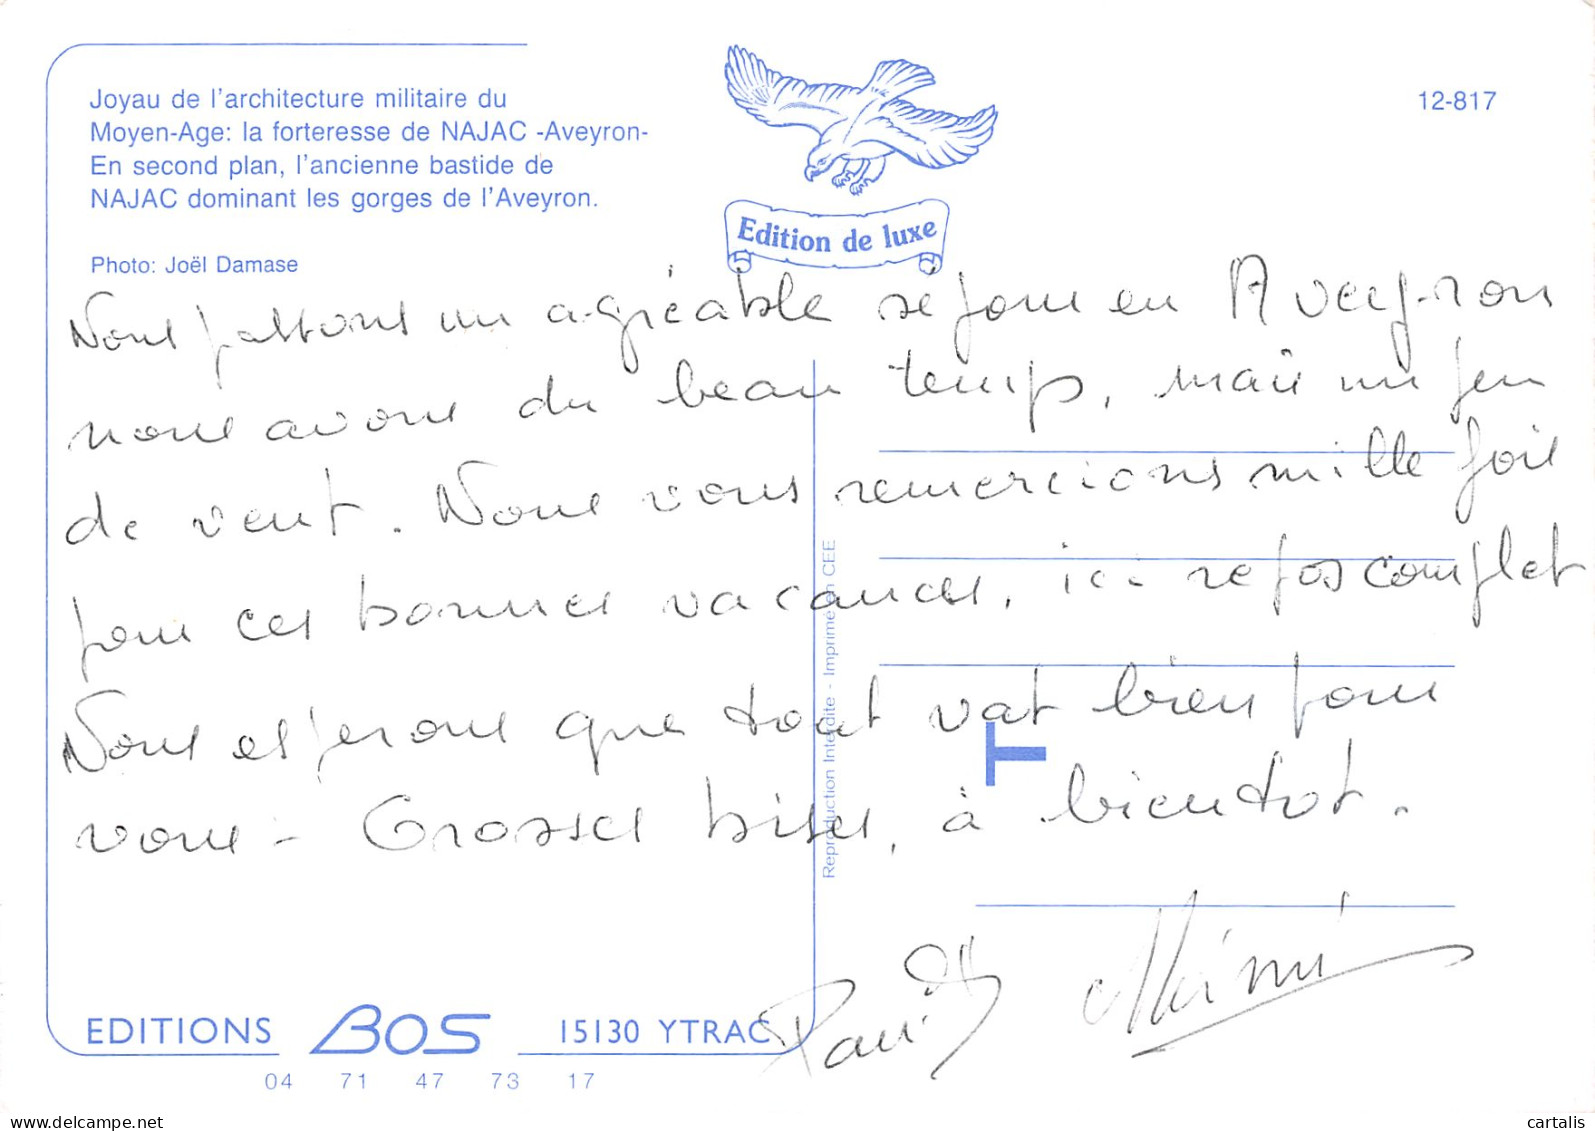 Joyau de l'architecture militaire du
Moyen-Age: la forteresse de NAJAC -Aveyron-
En second plan, l'ancienne bastide de
NAJAC dominant les gorges de l'Aveyron.
Photo: Joël Damase
Edition de luxe
12-817
Nous passons un agréable séjour en Aveyron
nous avons du beau temps, mais un peu
de vent. Nous vous remercions mille fois
pour ces bonnes vacances, ici repos complet
Nous espérons que tout vat bien pour
vous - Grosses bises, à bientot.
Mimi
Reproduction Interdite - Imprimé en CEE
T
EDITIONS BOS 15130 YTRAC
04 71 47 73 17
delcampe.net
cartalis